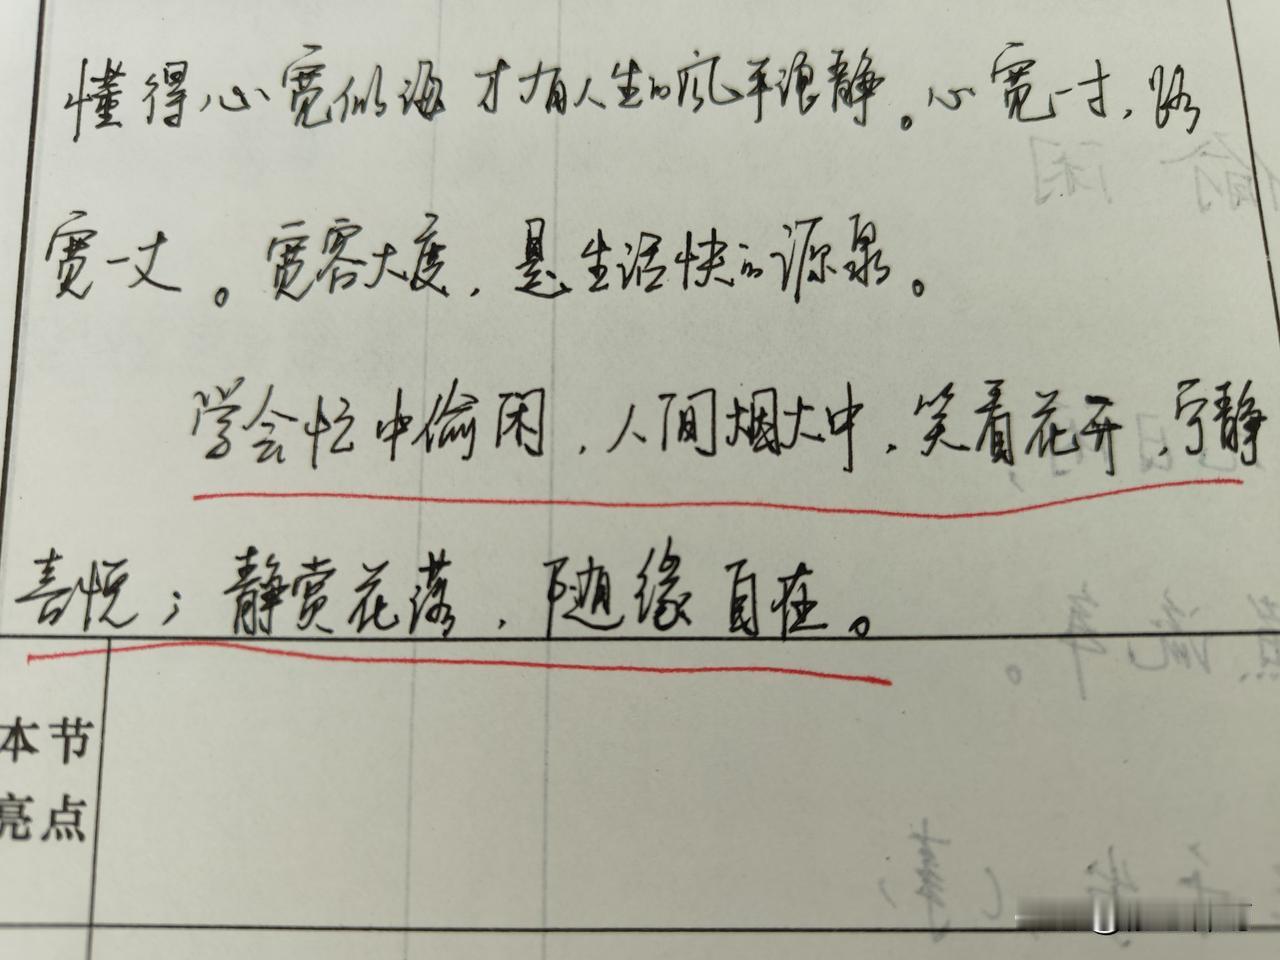 懂得心宽似海才有人生的风平浪静。心宽一寸，路
宽一丈。宽容大度，是生活快的源泉。
学会忙中偷闲，人间烟火中，笑看花开，宁静
喜悦；静赏花落，随缘自在。
本节
亮点